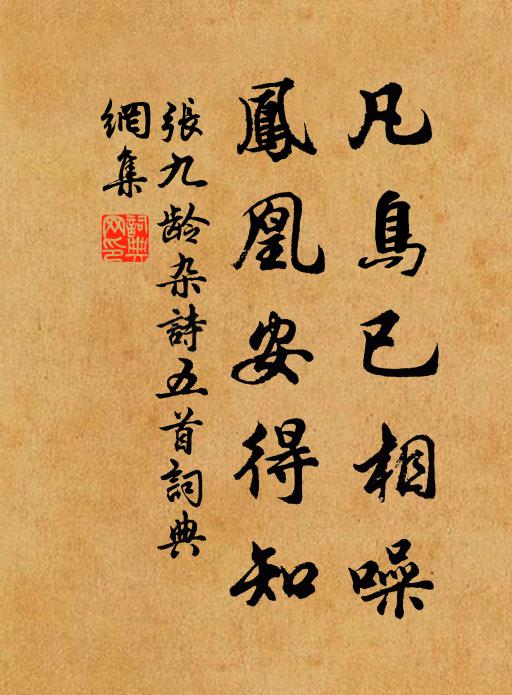 凡鳥已相噪
鳳凰安得知
張九龄杂詩五首詞典
網集
詞典
网印